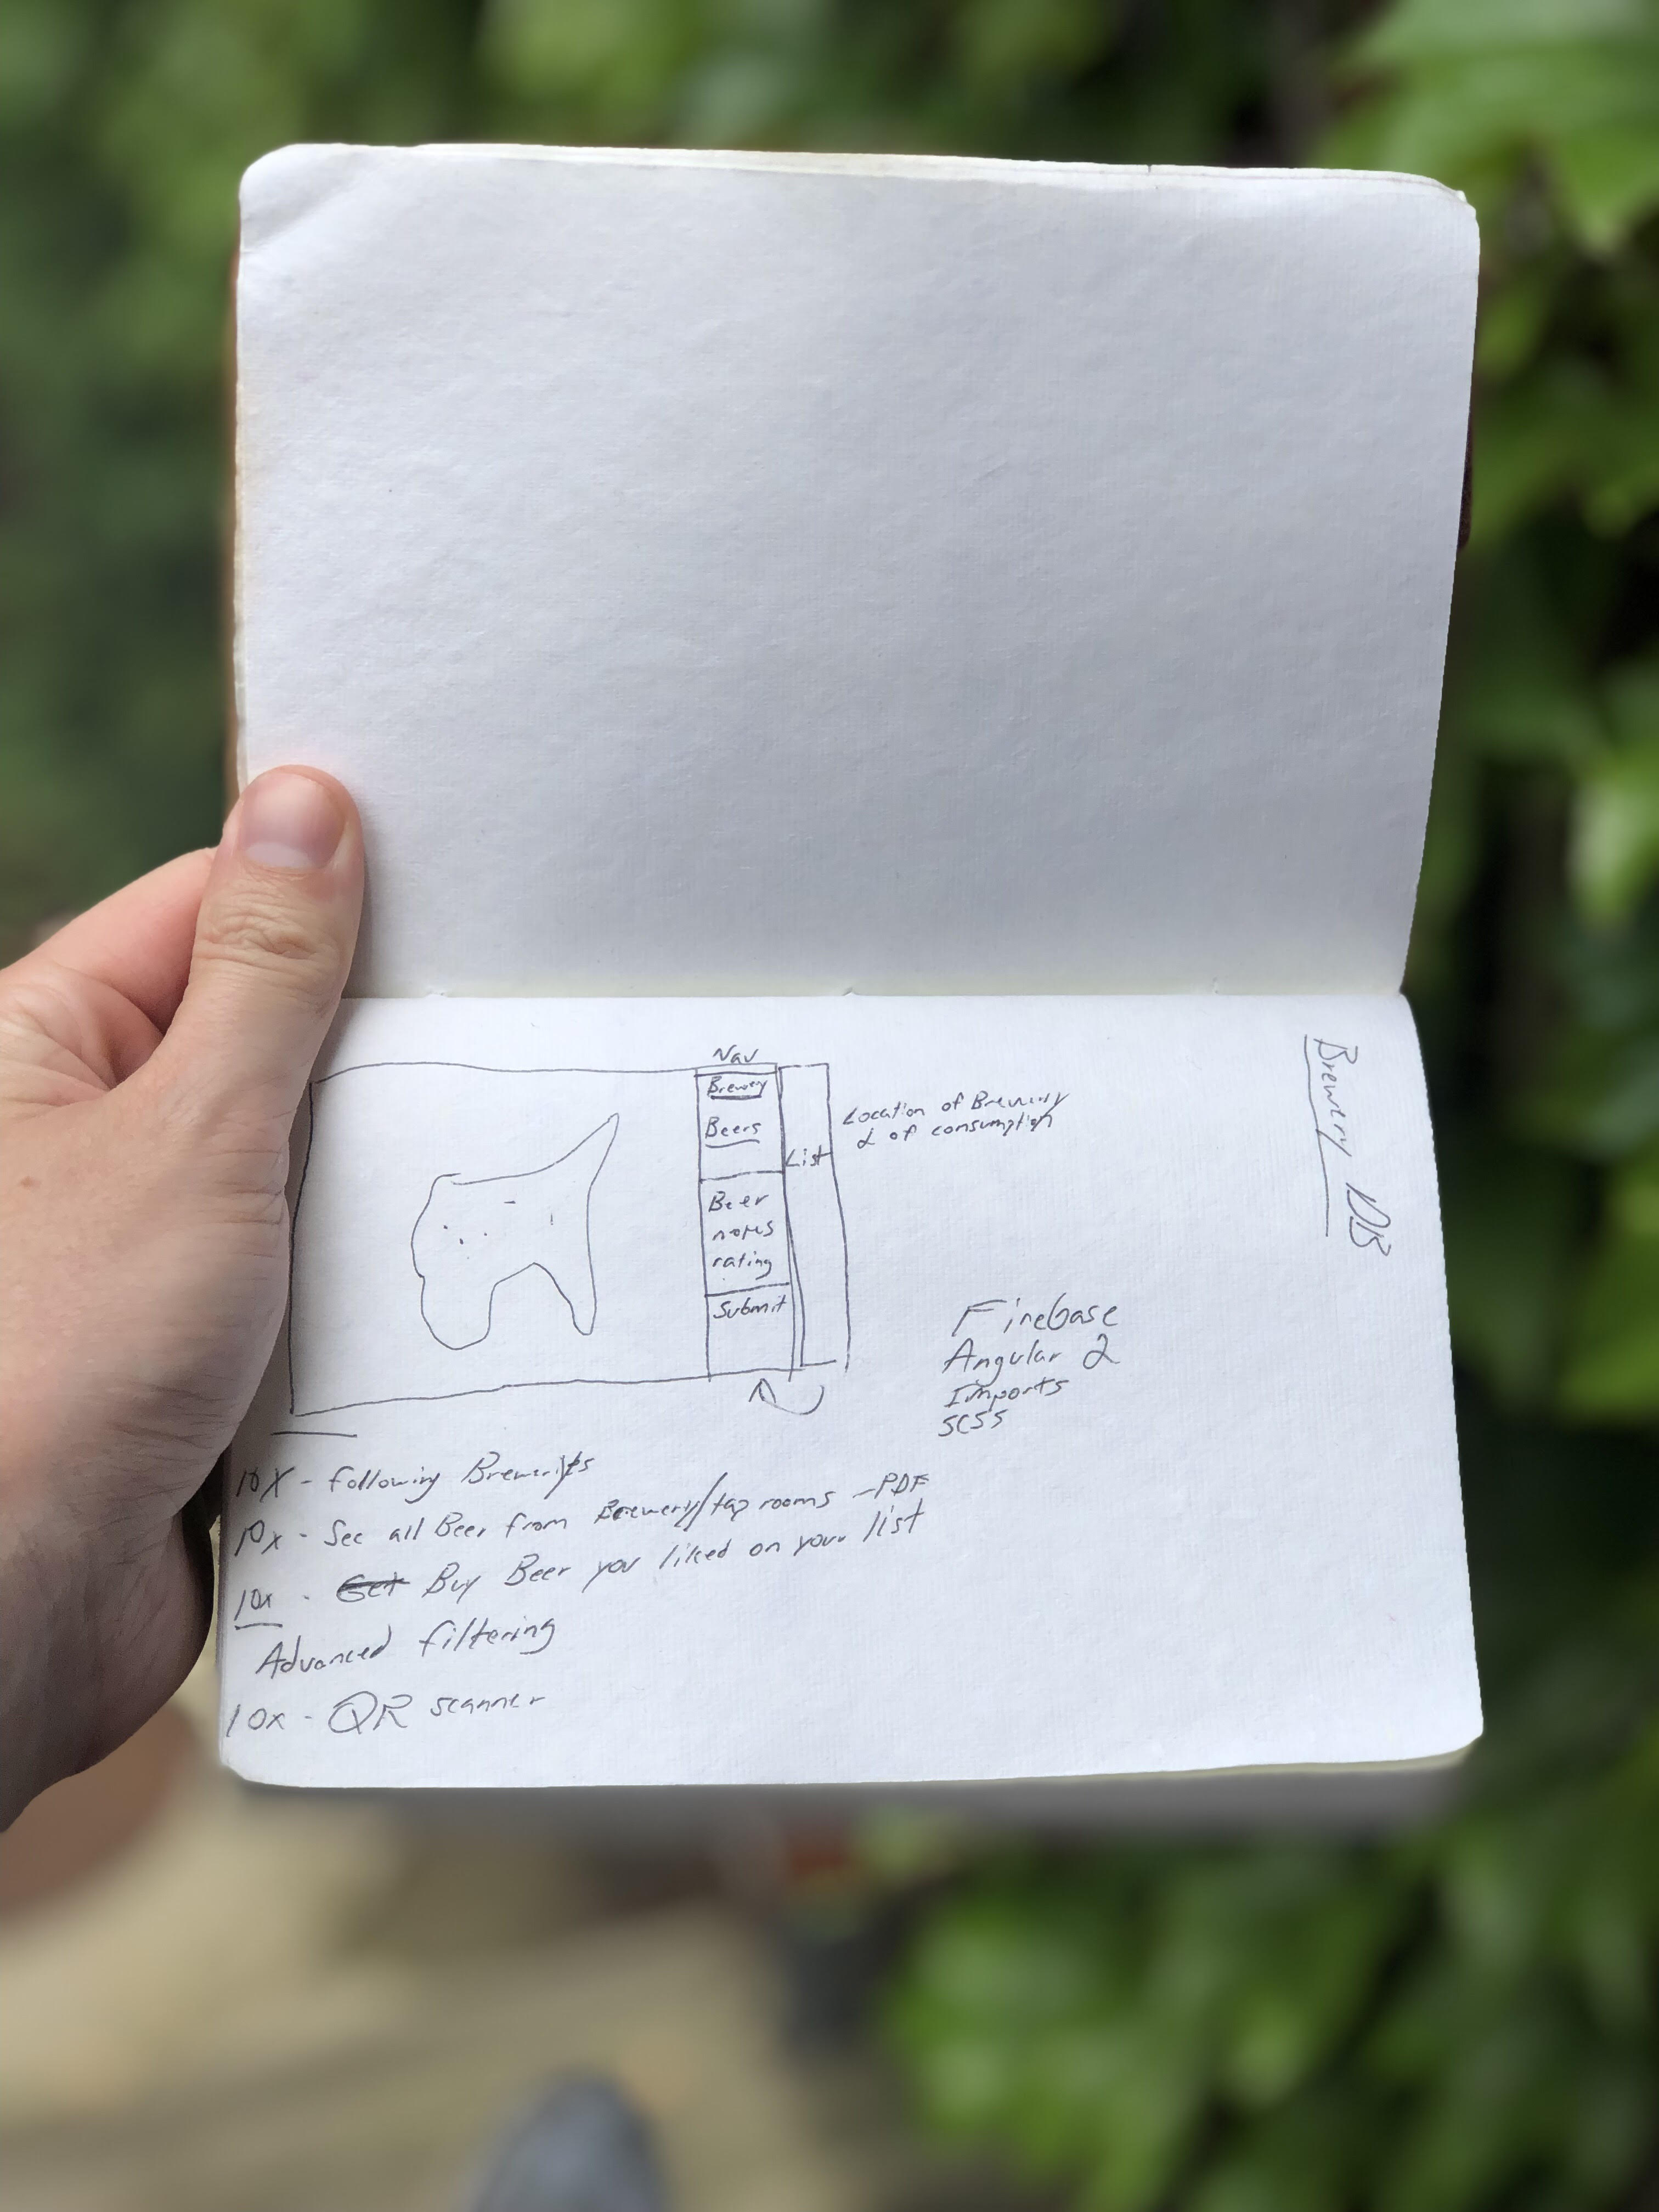 Brewery DB
Nav
Brewery
Beers
List
Beer
notes
rating
Submit
Location of Brewery
& of consumption
Firebase
Angular 2
Imports
SCSS
10X - Following Breweries
10x - See all Beer from Brewery/tap rooms - PDF
10x - Get Buy Beer you liked on your list
Advanced filtering
10x - QR scanner